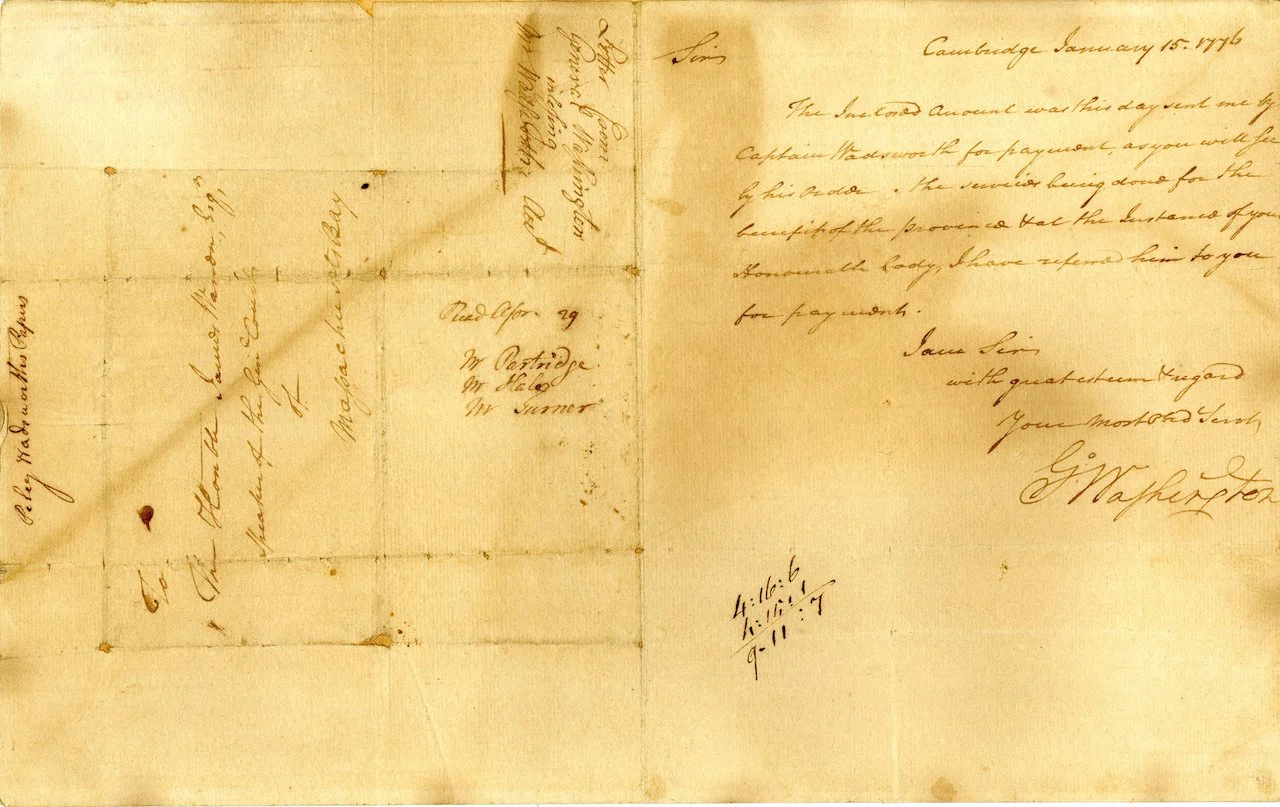 Letter from
General Washington
incloseing
Mr Wadsworths Acct
To
The Honble James Warren, Esqr
Speaker of the Genl Court
of
Massachusetts Bay
Peleg Wadsworths Papers
Read Apr. 29
Mr Partridge
Mr Hale
Mr Turner
Cambridge January 15. 1776
Sir
The Inclosed Account was this day sent me by
Captain Wadsworth for payment, as you will see
by his order. the services being done for the
benefit of the province & at the Instance of your
Honourable body, I have referred him to you
for payment.
I am Sir
with great esteem & regard
Your most Obed Servt
Go Washington
4:16:6
4:15:1
9-11:7